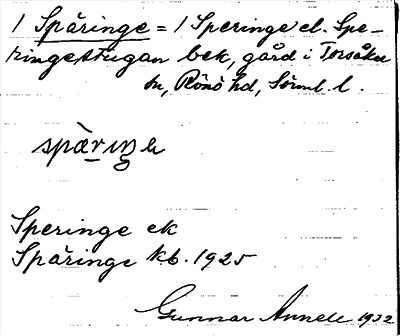 1 Späringe = 1 Speringe el. Spe-
ringestugan bek, gård i Torsåker
sn, Rönö hd, Sörml. l.
Speringe ek
Späringe kb. 1925
Gunnar Annell 1932